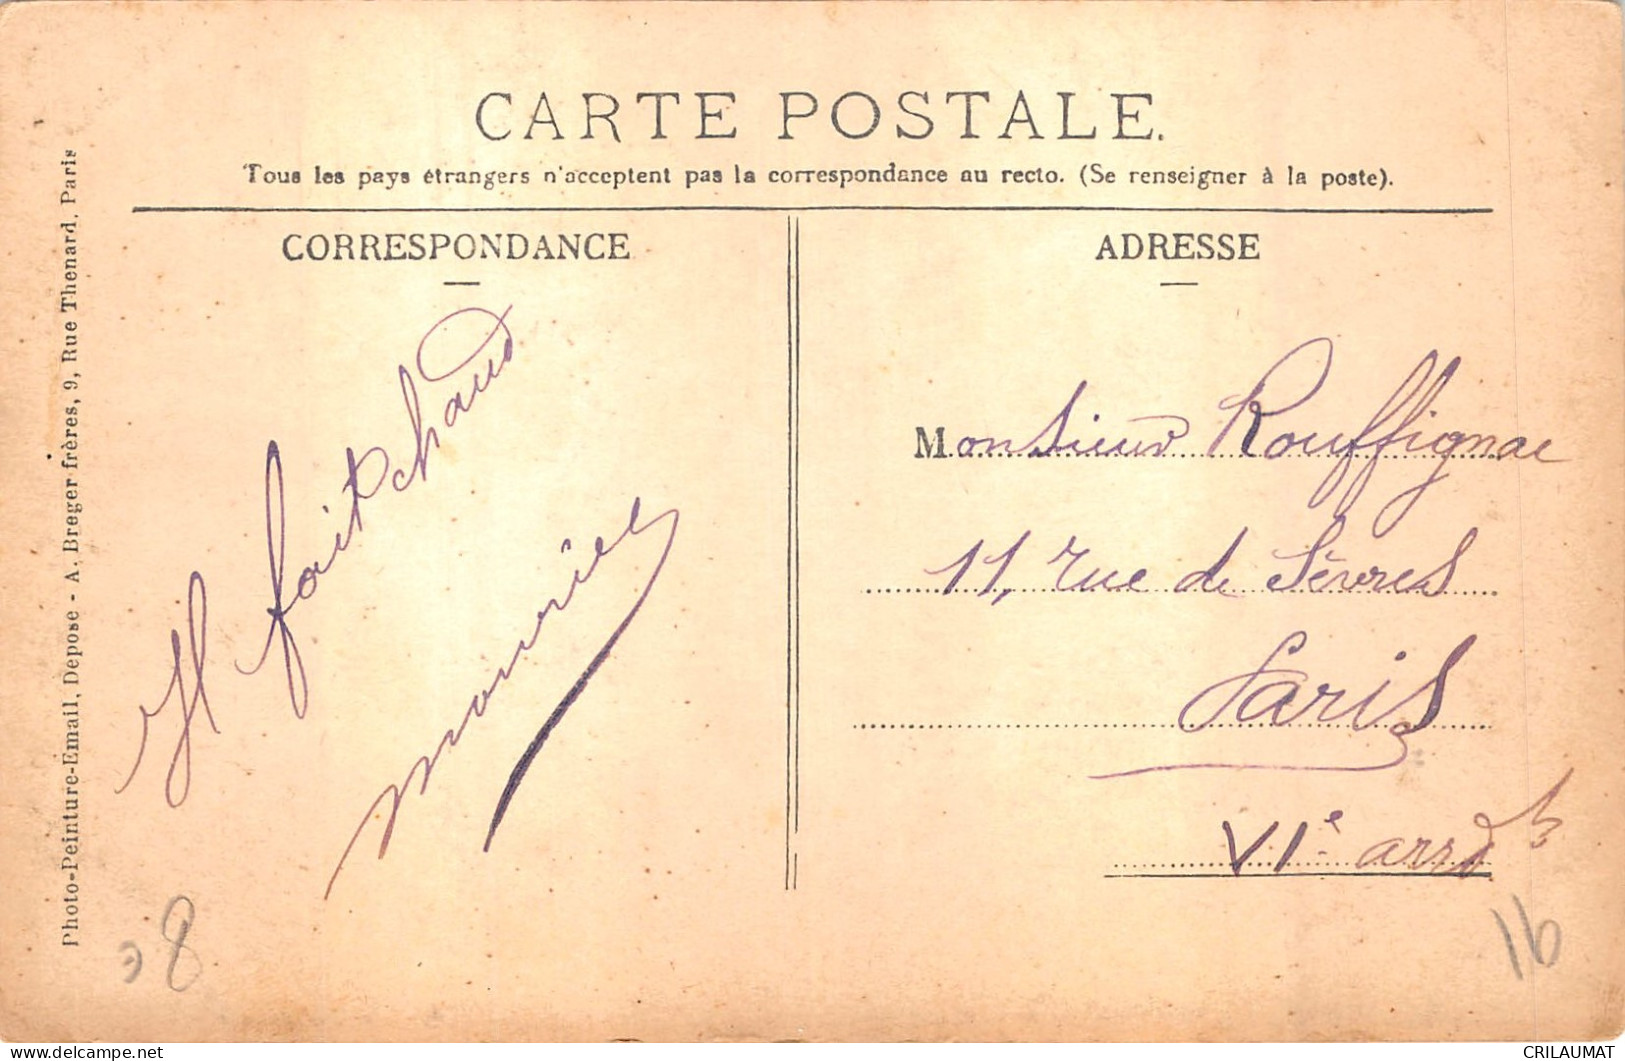 CARTE POSTALE.
Tous les pays étrangers n'acceptent pas la correspondance au recto. (Se renseigner à la poste).
CORRESPONDANCE
Il fait chaud
Maurice
ADRESSE
Monsieur Rouffignac
11, rue de Sèvres
Paris
VIe arrdt
Photo-Peinture-Email, Depose - A. Breger frères, 9, Rue Thenard, Paris
8
16
CRILAUMAT